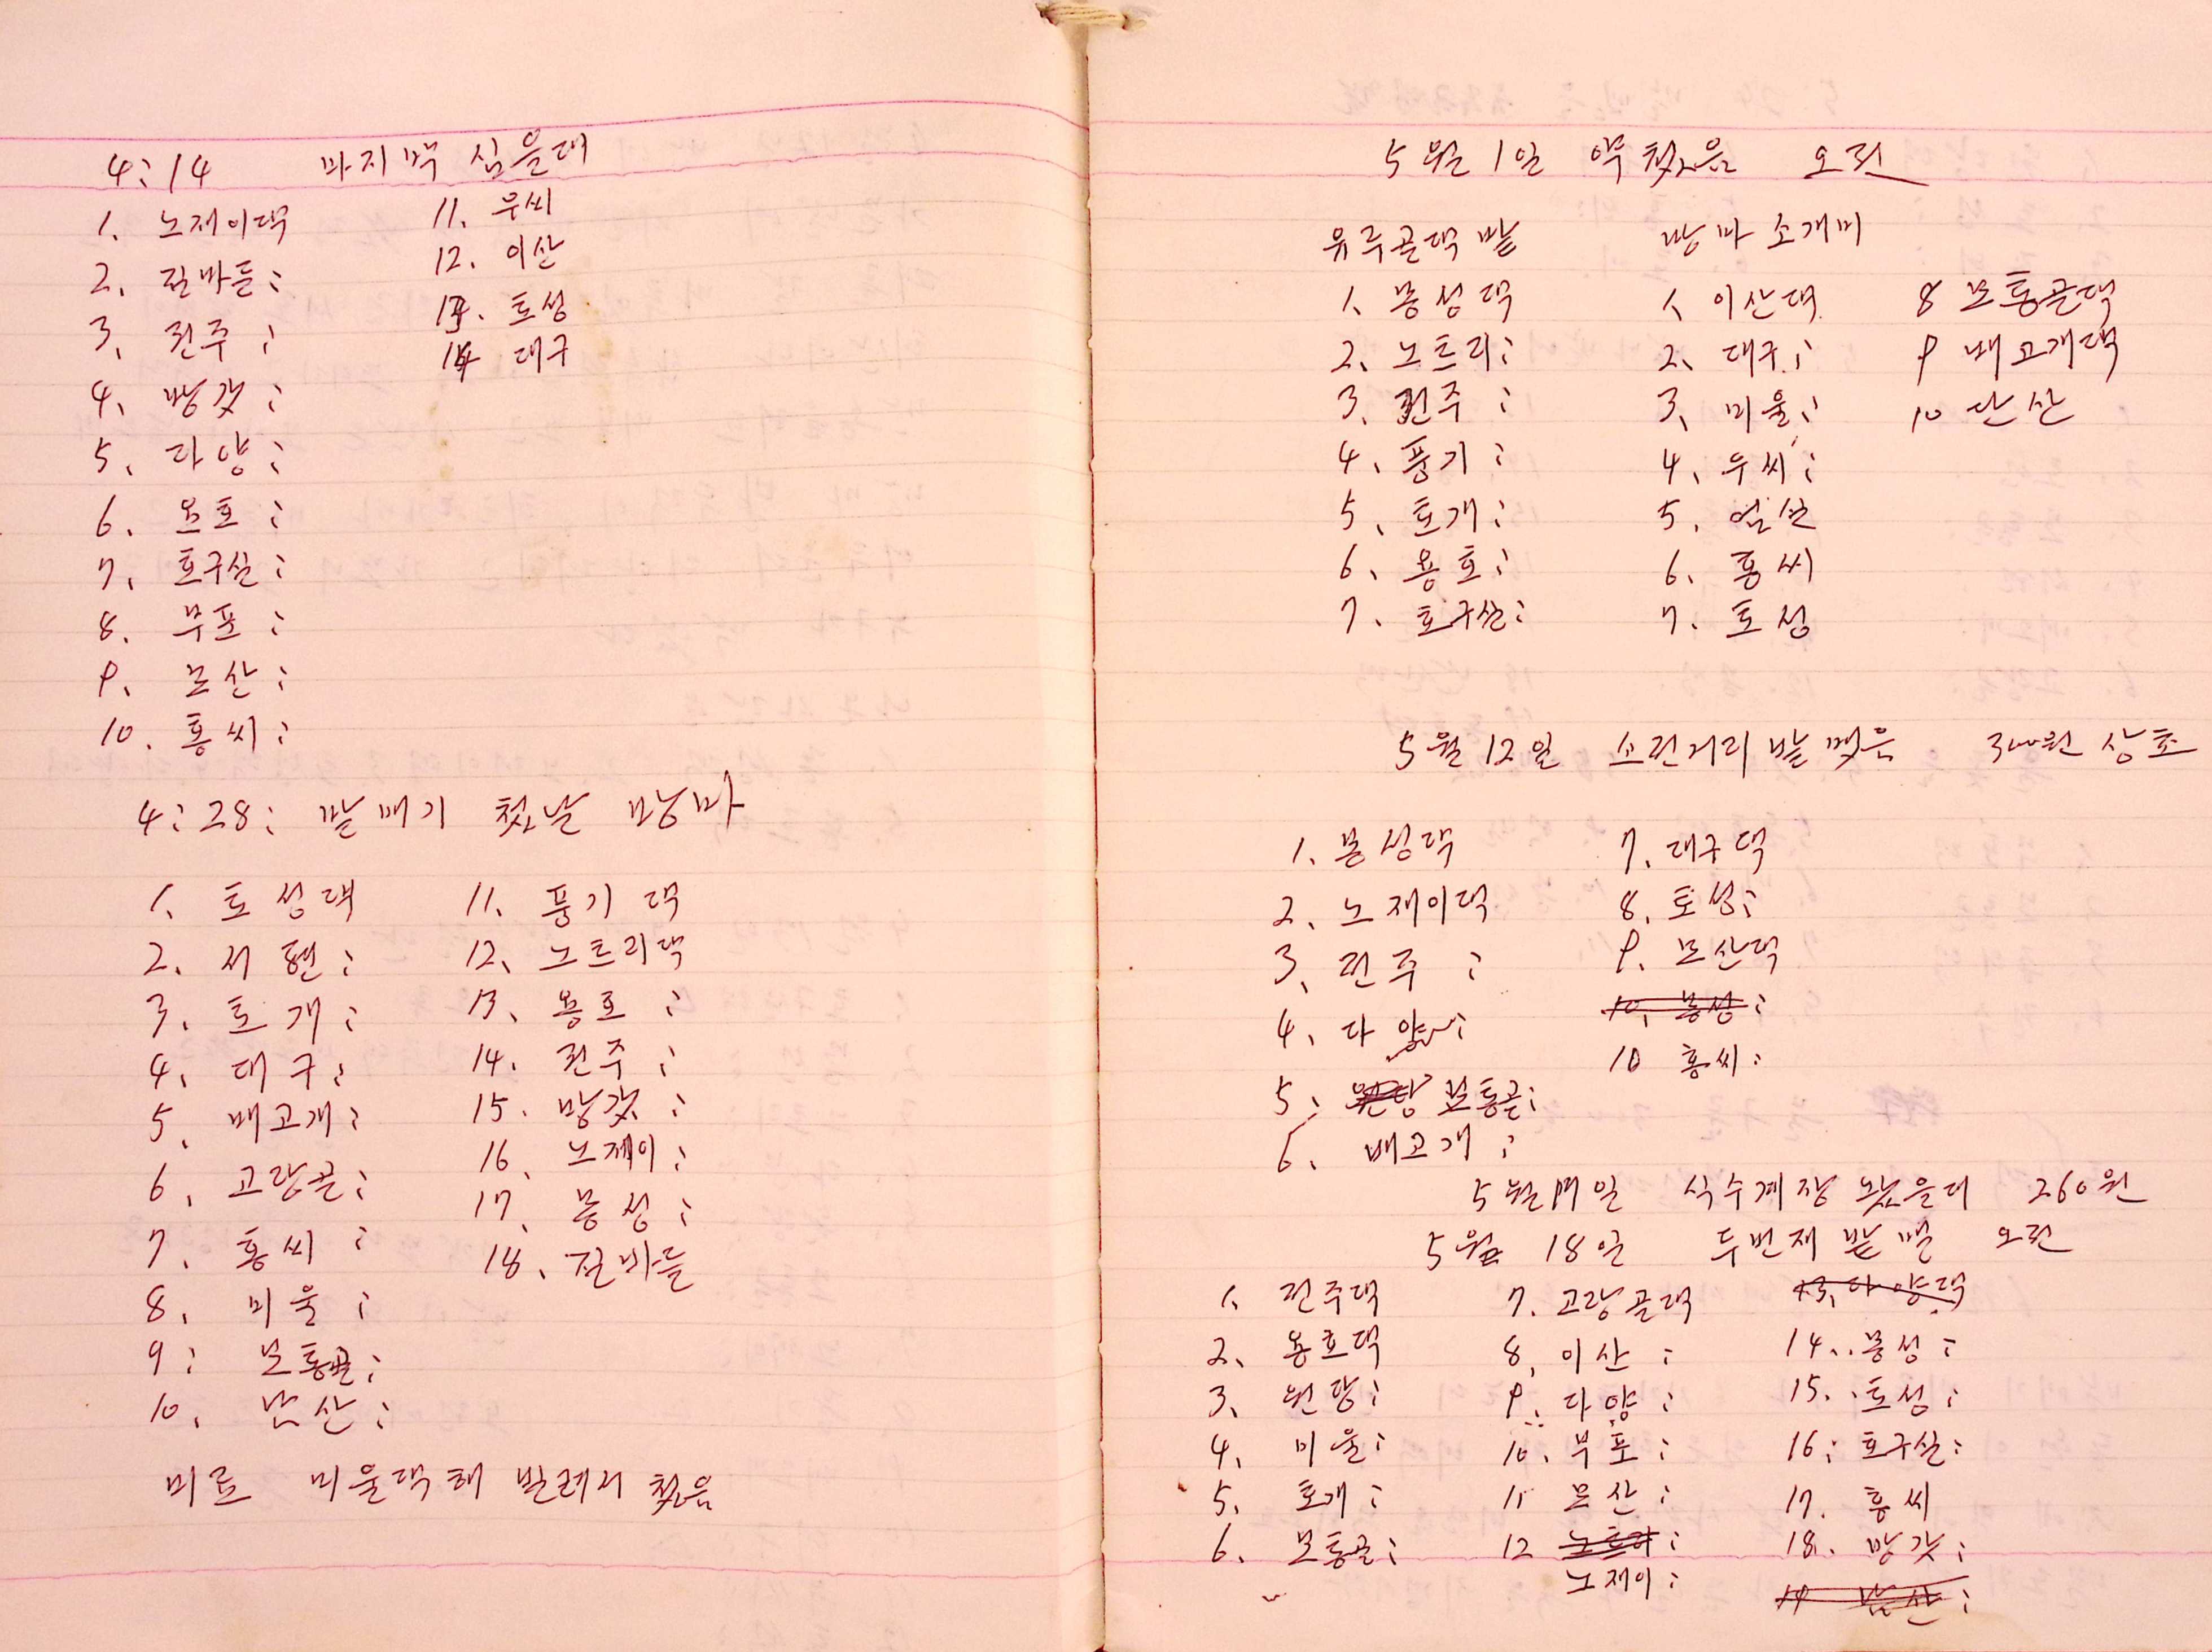 4:14 마지막 심을대
1. 노재이댁
2. 진바들:
3. 진주:
4. 방갓:
5. 다양:
6. 용호:
7. 호구실:
8. 부포:
9. 모산:
10. 홍씨:
11. 우씨
12. 이산
13. 토성
14 대구
4:28: 밭매기 첫날 망마
1. 토성댁
2. 서현:
3. 토개:
4. 대구:
5. 배고개:
6. 고랑골:
7. 홍씨:
8. 미울:
9: 보통골:
10. 난산:
11. 풍기댁
12. 노트리댁
13. 용호:
14. 진주:
15. 방갓:
16. 노제이:
17. 봉성:
18. 진바들
비료 미울댁해 빌려서 첬음
5월 1일 약첬음 오전
유루골댁 밭
1. 봉성댁
2. 노트리:
3. 진주:
4. 풍기:
5. 토개:
6. 용호:
7. 호구실:
망마 소개미
1. 이산댁
2. 대구:
3. 미울:
4. 우씨:
5.
6. 홍씨
7. 토성
8 보통골댁
9 배고개댁
10 단산
5월 12일 밭 300원 상호
1. 봉성댁
2. 노재이댁
3. 진주:
4. 다양:
5. 보통골:
6. 배고개:
7. 대구댁
8. 토성:
9. 모산댁
10. 봉성:
10 홍씨:
5월 17일 식수계장 왔을대 260원
5월 18일 두번재 밭 맬 오전
1. 진주댁
2. 용호댁
3. 원당:
4. 미울:
5. 토개:
6. 보통골:
7. 고랑골댁
8. 이산:
9. 다양:
10. 부포:
11 모산:
12 노트리:
노재이:
13. 다양댁
14. 봉성:
15. 토성:
16: 호구실:
17. 홍씨
18. 방갓:
19 난산: